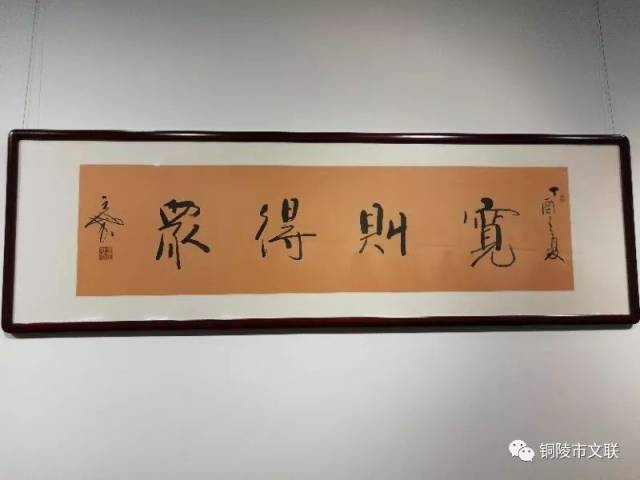 丁酉之夏
寬則得眾
铜陵市文联